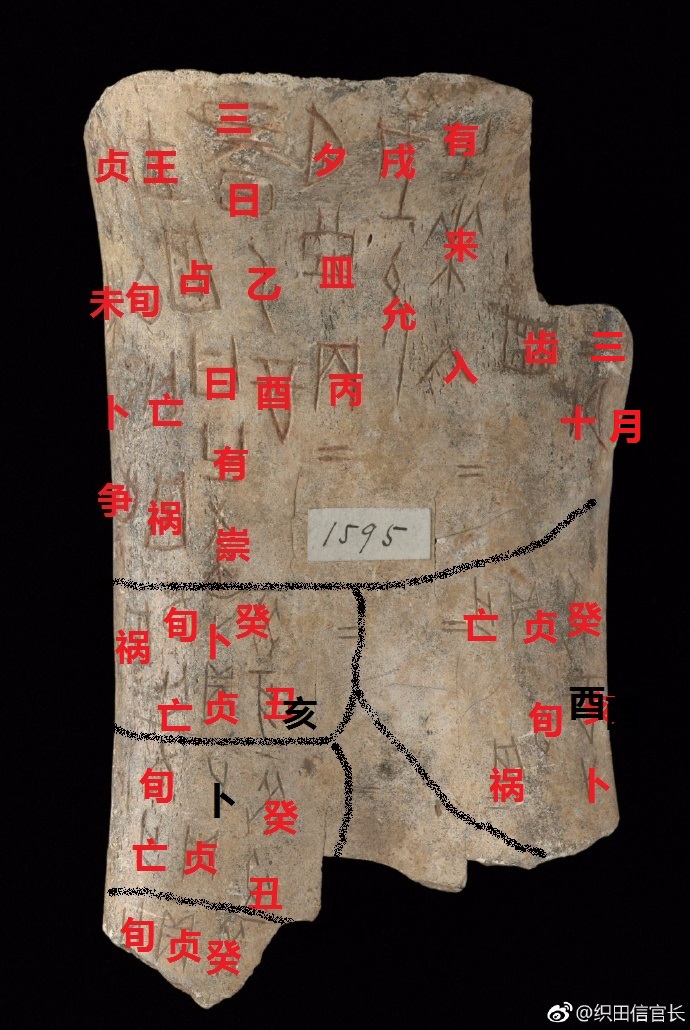 未卜争
贞旬亡祸
王占曰有祟
三日乙酉
夕皿丙
戌允
有来入
齿
十三月
1595
癸酉卜
贞旬
亡祸
癸亥
卜贞
旬亡
祸
癸丑
卜贞
旬亡
癸
贞
旬
@织田信官长